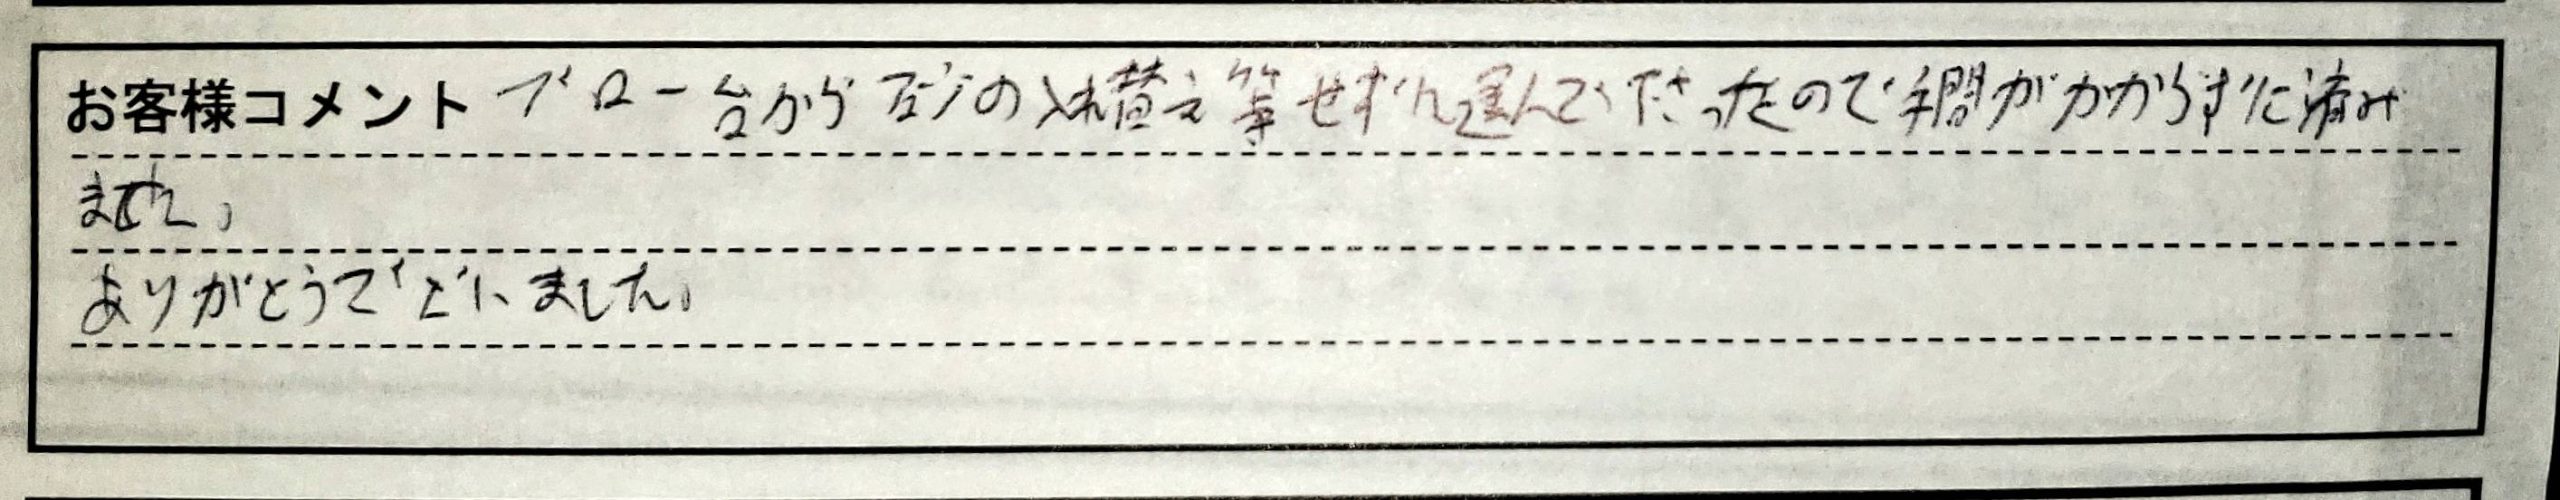 お客様コメント ブロー台から の入れ替え等せずに運んで下さったので手間がかからずに済み
ました。
ありがとうございました。